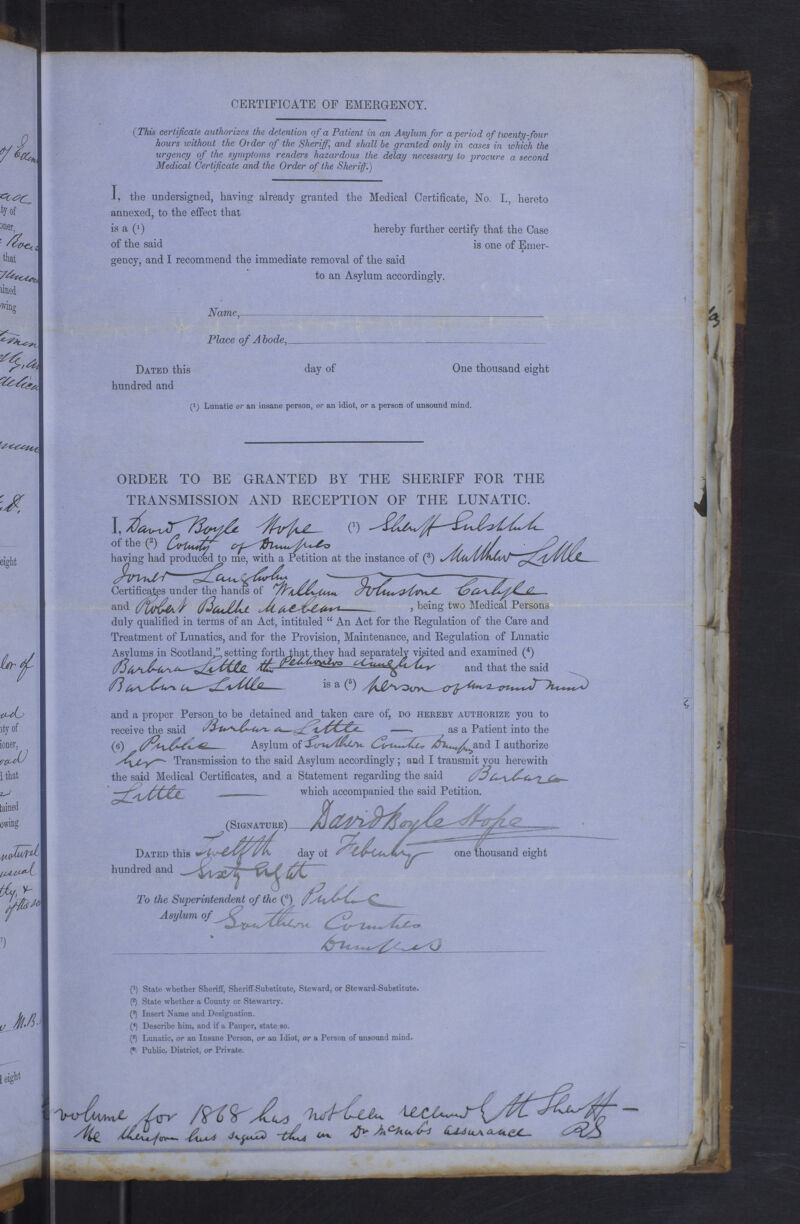 CERTIFICATE OF EMERGENCY.
(This certificate authorizes the detention of a Patient in an Asylum for a period of twenty-four
hours without the Order of the Sheriff, and shall be granted only in cases in which the
urgency of the symptoms renders hazardous the delay necessary to procure a second
Medical Certificate and the Order of the Sheriff.)
I, the undersigned, having already granted the Medical Certificate, No. I., hereto
annexed, to the effect that
is a (1) hereby further certify that the Case
of the said is one of Emer-
gency, and I recommend the immediate removal of the said
to an Asylum accordingly.
Name,
Place of Abode,
DATED this day of One thousand eight
hundred and
(1) Lunatic or an insane person, or an idiot, or a person of unsound mind.
ORDER TO BE GRANTED BY THE SHERIFF FOR THE
TRANSMISSION AND RECEPTION OF THE LUNATIC.
I, David Boyle Hope (1) Sheriff Substitute
of the (2) County of Dumfries
having had produced to me, with a Petition at the instance of (3) Matthew Little
Joiner Langholm
Certificates under the hands of William Johnstone Carlyle
and Robert Baillie Maclean, being two Medical Persons
duly qualified in terms of an Act, intituled " An Act for the Regulation of the Care and
Treatment of Lunatics, and for the Provision, Maintenance, and Regulation of Lunatic
Asylums in Scotland," setting forth that they had separately visited and examined (4)
Barbara Little the Petitioners daughter and that the said
Barbara Little is a (5) person of unsound mind
and a proper Person to be detained and taken care of, DO HEREBY AUTHORIZE you to
receive the said Barbara Little — as a Patient into the
(6) Public Asylum of Southern Counties Dumfries and I authorize
her Transmission to the said Asylum accordingly; and I transmit you herewith
the said Medical Certificates, and a Statement regarding the said Barbara
Little — which accompanied the said Petition.
(SIGNATURE) David Boyle Hope
DATED this Twelfth day of February one thousand eight
hundred and Sixty eight
To the Superintendent of the (6) Public
Asylum of Southern Counties
Dumfries
(1) State whether Sheriff, Sheriff-Substitute, Steward, or Steward-Substitute.
(2) State whether a County or Stewartry.
(3) Insert Name and Designation.
(4) Describe him, and if a Pauper, state so.
(5) Lunatic, or an Insane Person, or an Idiot, or a Person of unsound mind.
(6) Public, District, or Private.
volume for 1868 has not been received by the Sheriff —
He therefore has signed this on Dr McNab's assurance RS